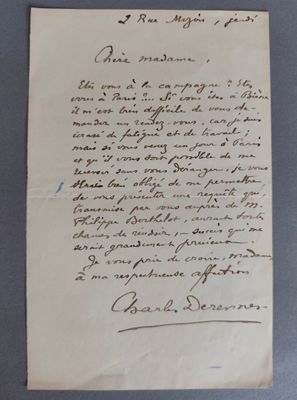 2 Rue Mizon, jeudi
Chère madame,
Etes vous à la campagne ? Etes
vous à Paris ?... Si vous êtes à Bièvre
il m'est très difficile de vous de-
mander un rendez-vous, car je suis
écrasé de fatigue et de travail ;
mais si vous venez un jour à Paris
et qu'il vous soit possible de me
recevoir sans vous déranger, je vous
serais très obligé de me permettre
de vous présenter une requête qui,
transmise par vous auprès de M.
Philippe Berthelot, aurait toutes
chances de réussir, — succès qui me
serait grandement précieux.
Je vous prie de croire, madame,
à ma respectueuse affection
Charles Derennes